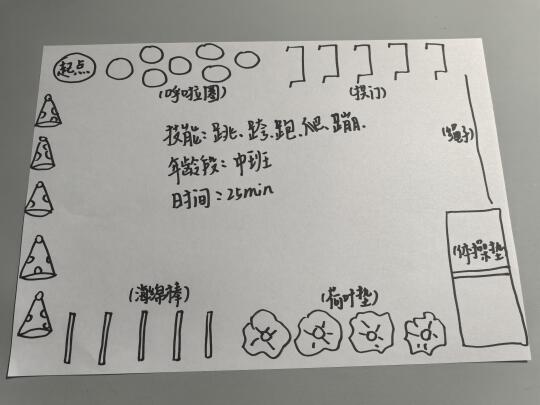 起点
(呼啦圈)
(拱门)
(绳子)
技能：跳、跨、跑、爬、蹦.
年龄段：中班
时间：25min
(体操垫)
(海绵棒)
(荷叶垫)